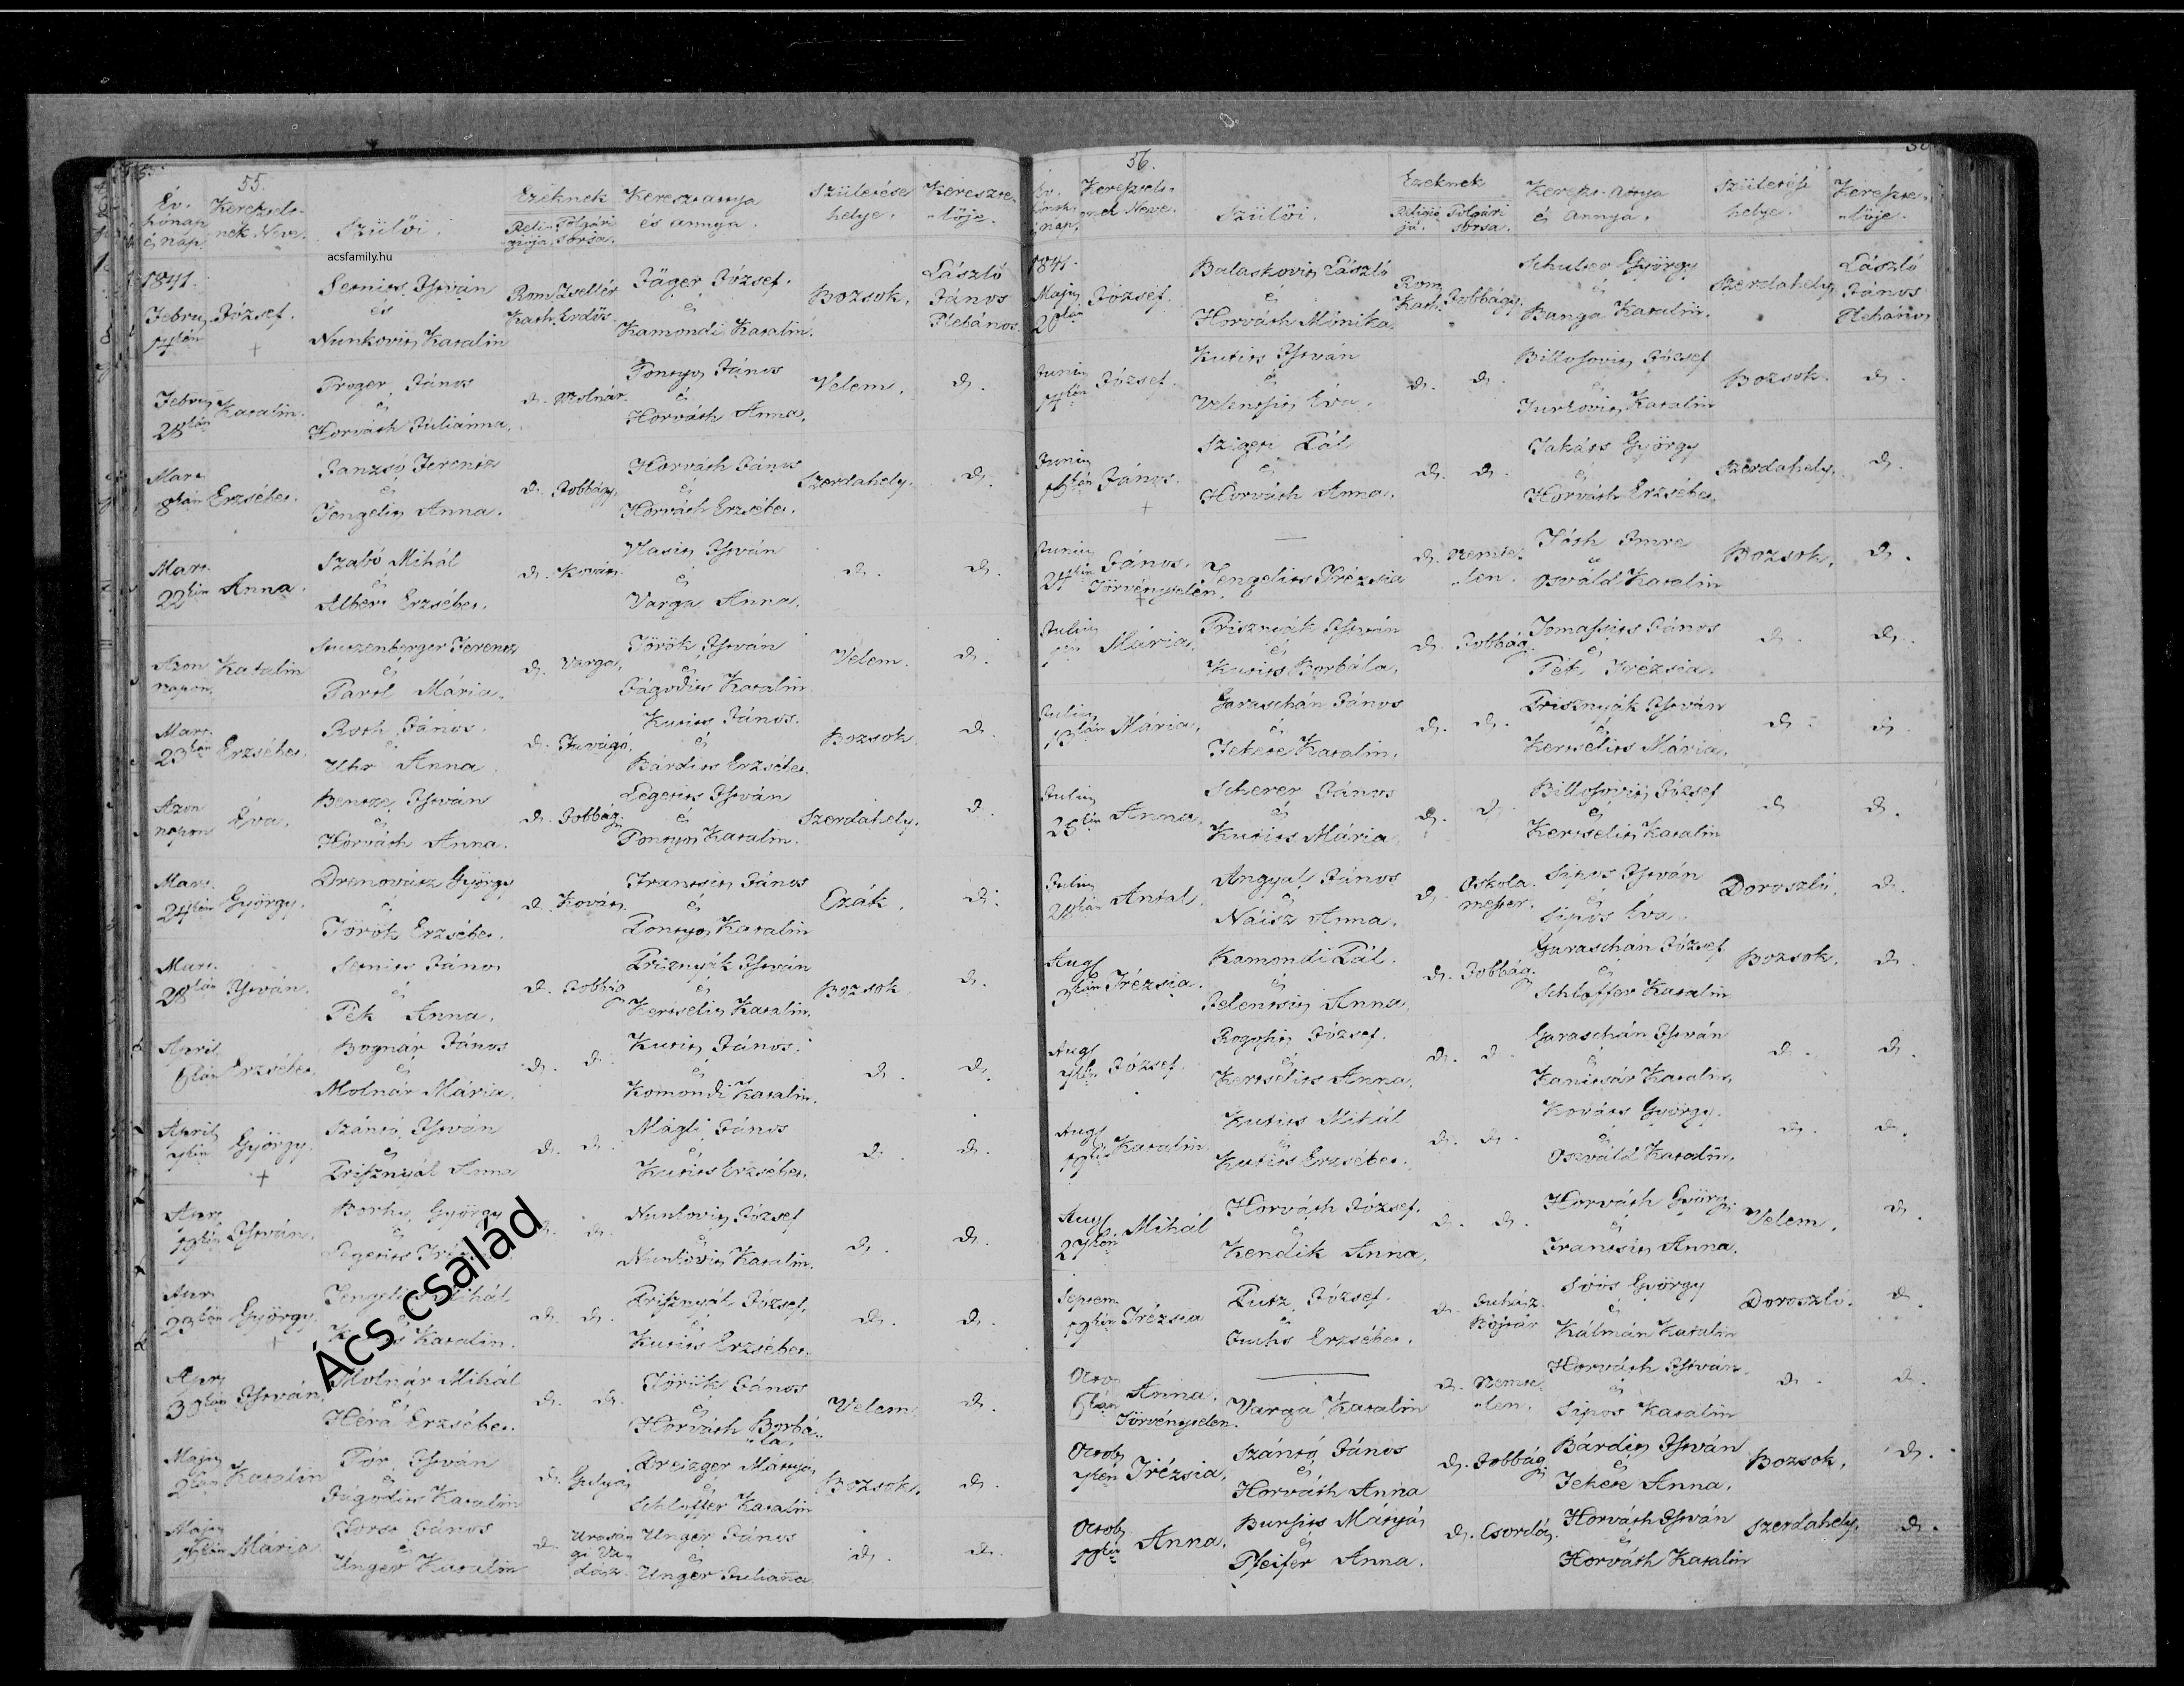 55.
Év, hónap, és nap.
Keresztel-
nek Neve.
Szülői.
Ezeknek
Reli-
gioja.
Polgári
sorsa.
Keresztattya
és annya.
Születése
helye.
Kereszte-
lője.
acsfamily.hu
1841.
Febru
14kén
József.
István
és
Nunkovits Katalin
Rom.
Kath.
Zsellér
Erdős.
Jáger József.
és
Kamondi Katalin.
Bozsok.
László
János
Plebános.
Febru
28kán
Katalin.
Troger János
és
Horváth Juliánna.
d.
Molnár.
Pontyos János
és
Horváth Anna.
Velem.
d.
Mart.
8kán
Erzsébet.
Ferentz
és
Fengelits Anna.
d.
Jobbágy.
Horváth János
és
Horváth Erzsébet.
Szerdahely.
d.
Mart.
22kén
Anna.
Szabó Mihál
és
Albert Erzsébet.
d.
Kováts.
Vlasits István
és
Varga Anna.
d.
d.
Azon
napon.
Katalin
Ferentz
és
Mária.
d.
Varga.
Török István
és
Jágodits Katalin
Velem.
d.
Mart.
23kán
Erzsébet.
Roth János.
és
Uhr Anna
d.
Favágó.
Kutits János.
és
Bárdits Erzsébet.
Bozsok.
d.
Azon
napon
Éva.
Bentze István
és
Horváth Anna.
d.
Jobbágy.
Legetits István
és
Pontyos Katalin.
Szerdahely.
d.
Mart.
24kén
György.
Drenovátz György
és
Török Erzsébet.
d.
Kováts.
Frantsits János
és
Pontyos Katalin
Czák.
d.
Mart.
28kán
István.
János
és
Pék Anna.
d.
Jobbágy
Prisznyák István
és
Kertselits Katalin.
Bozsok
d.
April
6kán
Erzsébet.
Bognár János
és
Molnár Mária.
d.
d.
Kutits János.
és
Komondi Katalin.
d.
d.
April
7kén
György.
Szántó István
és
Prisznyák Anna
d.
d.
Mágli János
és
Kutits Erzsébet.
d.
d.
Apr.
19kén
István.
Borhy György
és
Legetits
d.
d.
Nunkovits József
és
Nunkovits Katalin.
d.
d.
Apr.
23kán
György.
Mihál
Katalin.
d.
d.
Prisznyák József.
és
Kutits Erzsébet.
d.
d.
Apr.
30kán
István.
Molnár Mihál
és
Erzsébet.
d.
d.
Török János
és
Horváth Borbá-
la.
Velem.
d.
Majus
Katalin
István
és
Jágodits Katalin
d.
Gulyás
Dreizger Mátyás
és
Schlaffer Katalin
Bozsok.
d.
Majus
Mária.
János
és
Unger Katalin
d.
Urasá-
gi Va-
dász.
Unger János
és
Unger Julianna
d.
d.
Ács család
56.
Év,
hónap,
és nap.
Keresztel-
tnek Neve.
Szülői.
Ezeknek
Religio-
ja.
Polgári
sorsa.
Kereszt-Attya
és Annya.
Születési
helye.
Kereszte-
lője.
1841.
Majus
József.
Balaskovits László
és
Horváth Mónika.
Rom.
Kath.
Jobbágy.
György
és
Banga Katalin.
Szerdahely
László
János
Plebános
Junius
14kén
József.
Kutits István
és
Velentsits Éva.
d.
d.
Billosovits József
és
Katalin
Bozsok.
d.
Junius
16kán
János.
Szigeti Pál
és
Horváth Anna.
d.
d.
Takáts György
és
Horváth Erzsébet.
Szerdahely.
d.
Junius
24kén
János.
Törvénytelen.
Fengelits Trézsia
d.
Nemte-
len.
Tóth Imre
és
Osváld Katalin
Bozsok.
d.
Julius
Mária.
Prisznyák István
és
Kutits Borbála.
d.
Jobbágy.
Tomasits János
és
Pék Trézsia.
d.
d.
Julius
13kán
Mária.
Garaschán János
és
Fekete Katalin.
d.
d.
Prisznyák István
és
Kertselits Mária.
d.
d.
Julius
25kén
Anna.
Scherer János
és
Kutits Mária
d.
d.
Billosovits József
és
Kertselits Katalin
d.
d.
Julius
28kán
Antal.
Angyal János
és
Náisz Anna.
d.
Oskola-
mester.
Sipos István
és
Sipos Éva.
Doroszló.
d.
Aug.
3kán
Trézsia.
Kamondi Pál.
és
Jelentsits Anna.
d.
Jobbágy.
Garaschán József
és
Schlaffer Katalin
Bozsok.
d.
Aug.
7kén
József.
József.
és
Kertselits Anna.
d.
d.
Garaschán István
és
Kanitsár Katalin.
d.
d.
Aug.
19kén
Katalin.
Kutits Mihál
és
Kutits Erzsébet.
d.
d.
Kováts György.
és
Osváld Katalin.
d.
d.
Aug.
27kén
Mihál
Horváth József.
és
Kendik Anna.
d.
d.
Horváth György.
és
Frantsits Anna.
Velem.
d.
Septem.
19kén
Trézsia
Putz József.
és
Fuchs Erzsébet.
d.
Juhász
Bojtár
Soós György
és
Kálmán Katalin
Doroszló.
d.
Octo
6kán
Anna.
Törvénytelen.
Varga Katalin
d.
Nemte-
len.
Horváth István.
és
Sipos Katalin
d.
d.
Octob
7kén
Trézsia.
Szántó János
és
Horváth Anna
d.
Jobbágy
Bárdits István
és
Fekete Anna.
Bozsok.
d.
Octob
Anna.
Bursits Mátyás
és
Pfeifer Anna.
d.
Csordás.
Horváth István
és
Horváth Katalin
Szerdahely.
d.